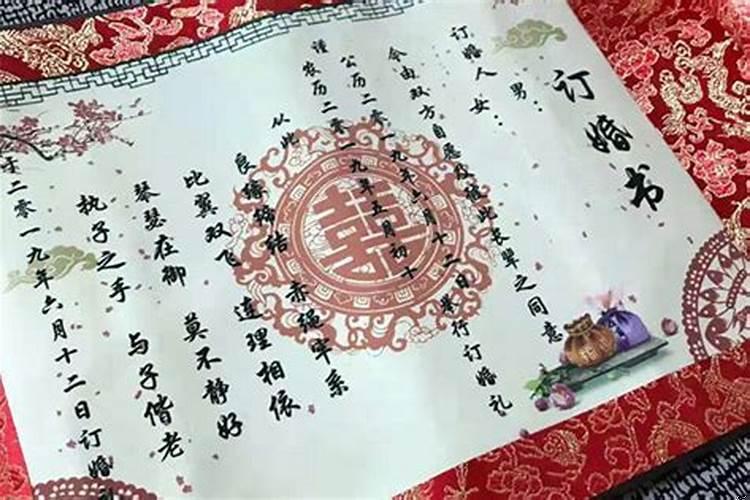 订婚书
订婚人 男：
女：
今由双方自愿及经此长辈之同意
公历二零一九年六月十二日举行订婚礼
谨农历二零一九年五月初十
从此
良缘缔结 赤绳牢系
比翼双飞 连理相依
琴瑟在御 莫不静好
执子之手 与子偕老
于二零一九年六月十二日订婚